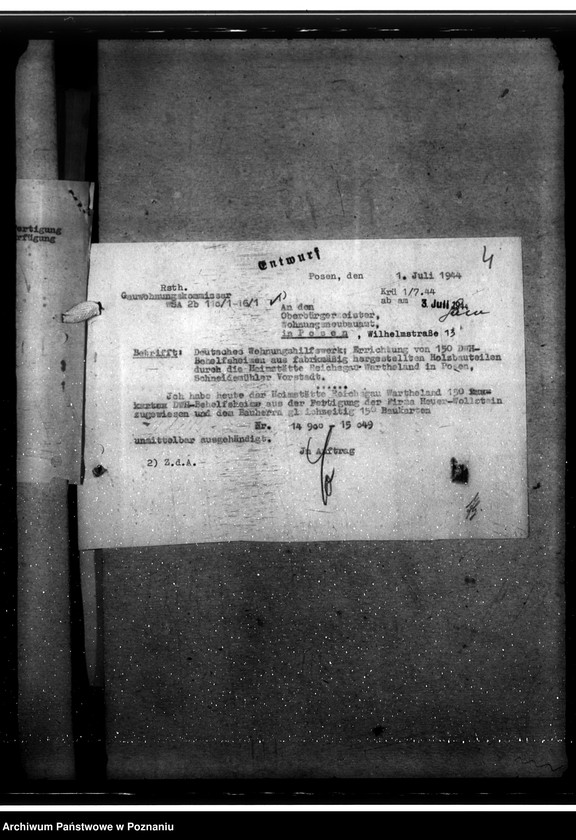 ertigung
rfügung
Entwurf
4
Posen, den 1. Juli 1944
Rsth.
Gauwohnungskommissar
WSA 2b 116/1-16/1
Krü 1/7.44
ab am 3. Juli 1944
1)
An den
Oberbürgermeister,
Wohnungsneubauamt,
in Posen, Wilhelmstraße 13
Betrifft: Deutsches Wohnungshilfswerk; Errichtung von 150 DWH-
Behelfsheimen aus fabrikmäßig hergestellten Holzbauteilen
durch die Heimstätte Reichsgau Wartheland in Posen,
Schneidemühler Vorstadt.
......
Ich habe heute der Heimstätte Reichsgau Wartheland 150
DWH-Behelfsheime aus der Fertigung der Firma Heuer-Wollstein
zugewiesen und dem Bauherrn gleichzeitig 150 Baukarten
Nr. 14 900 - 15 049
unmittelbar ausgehändigt.
Im Auftrag
2) Z.d.A.
Archiwum Państwowe w Poznaniu